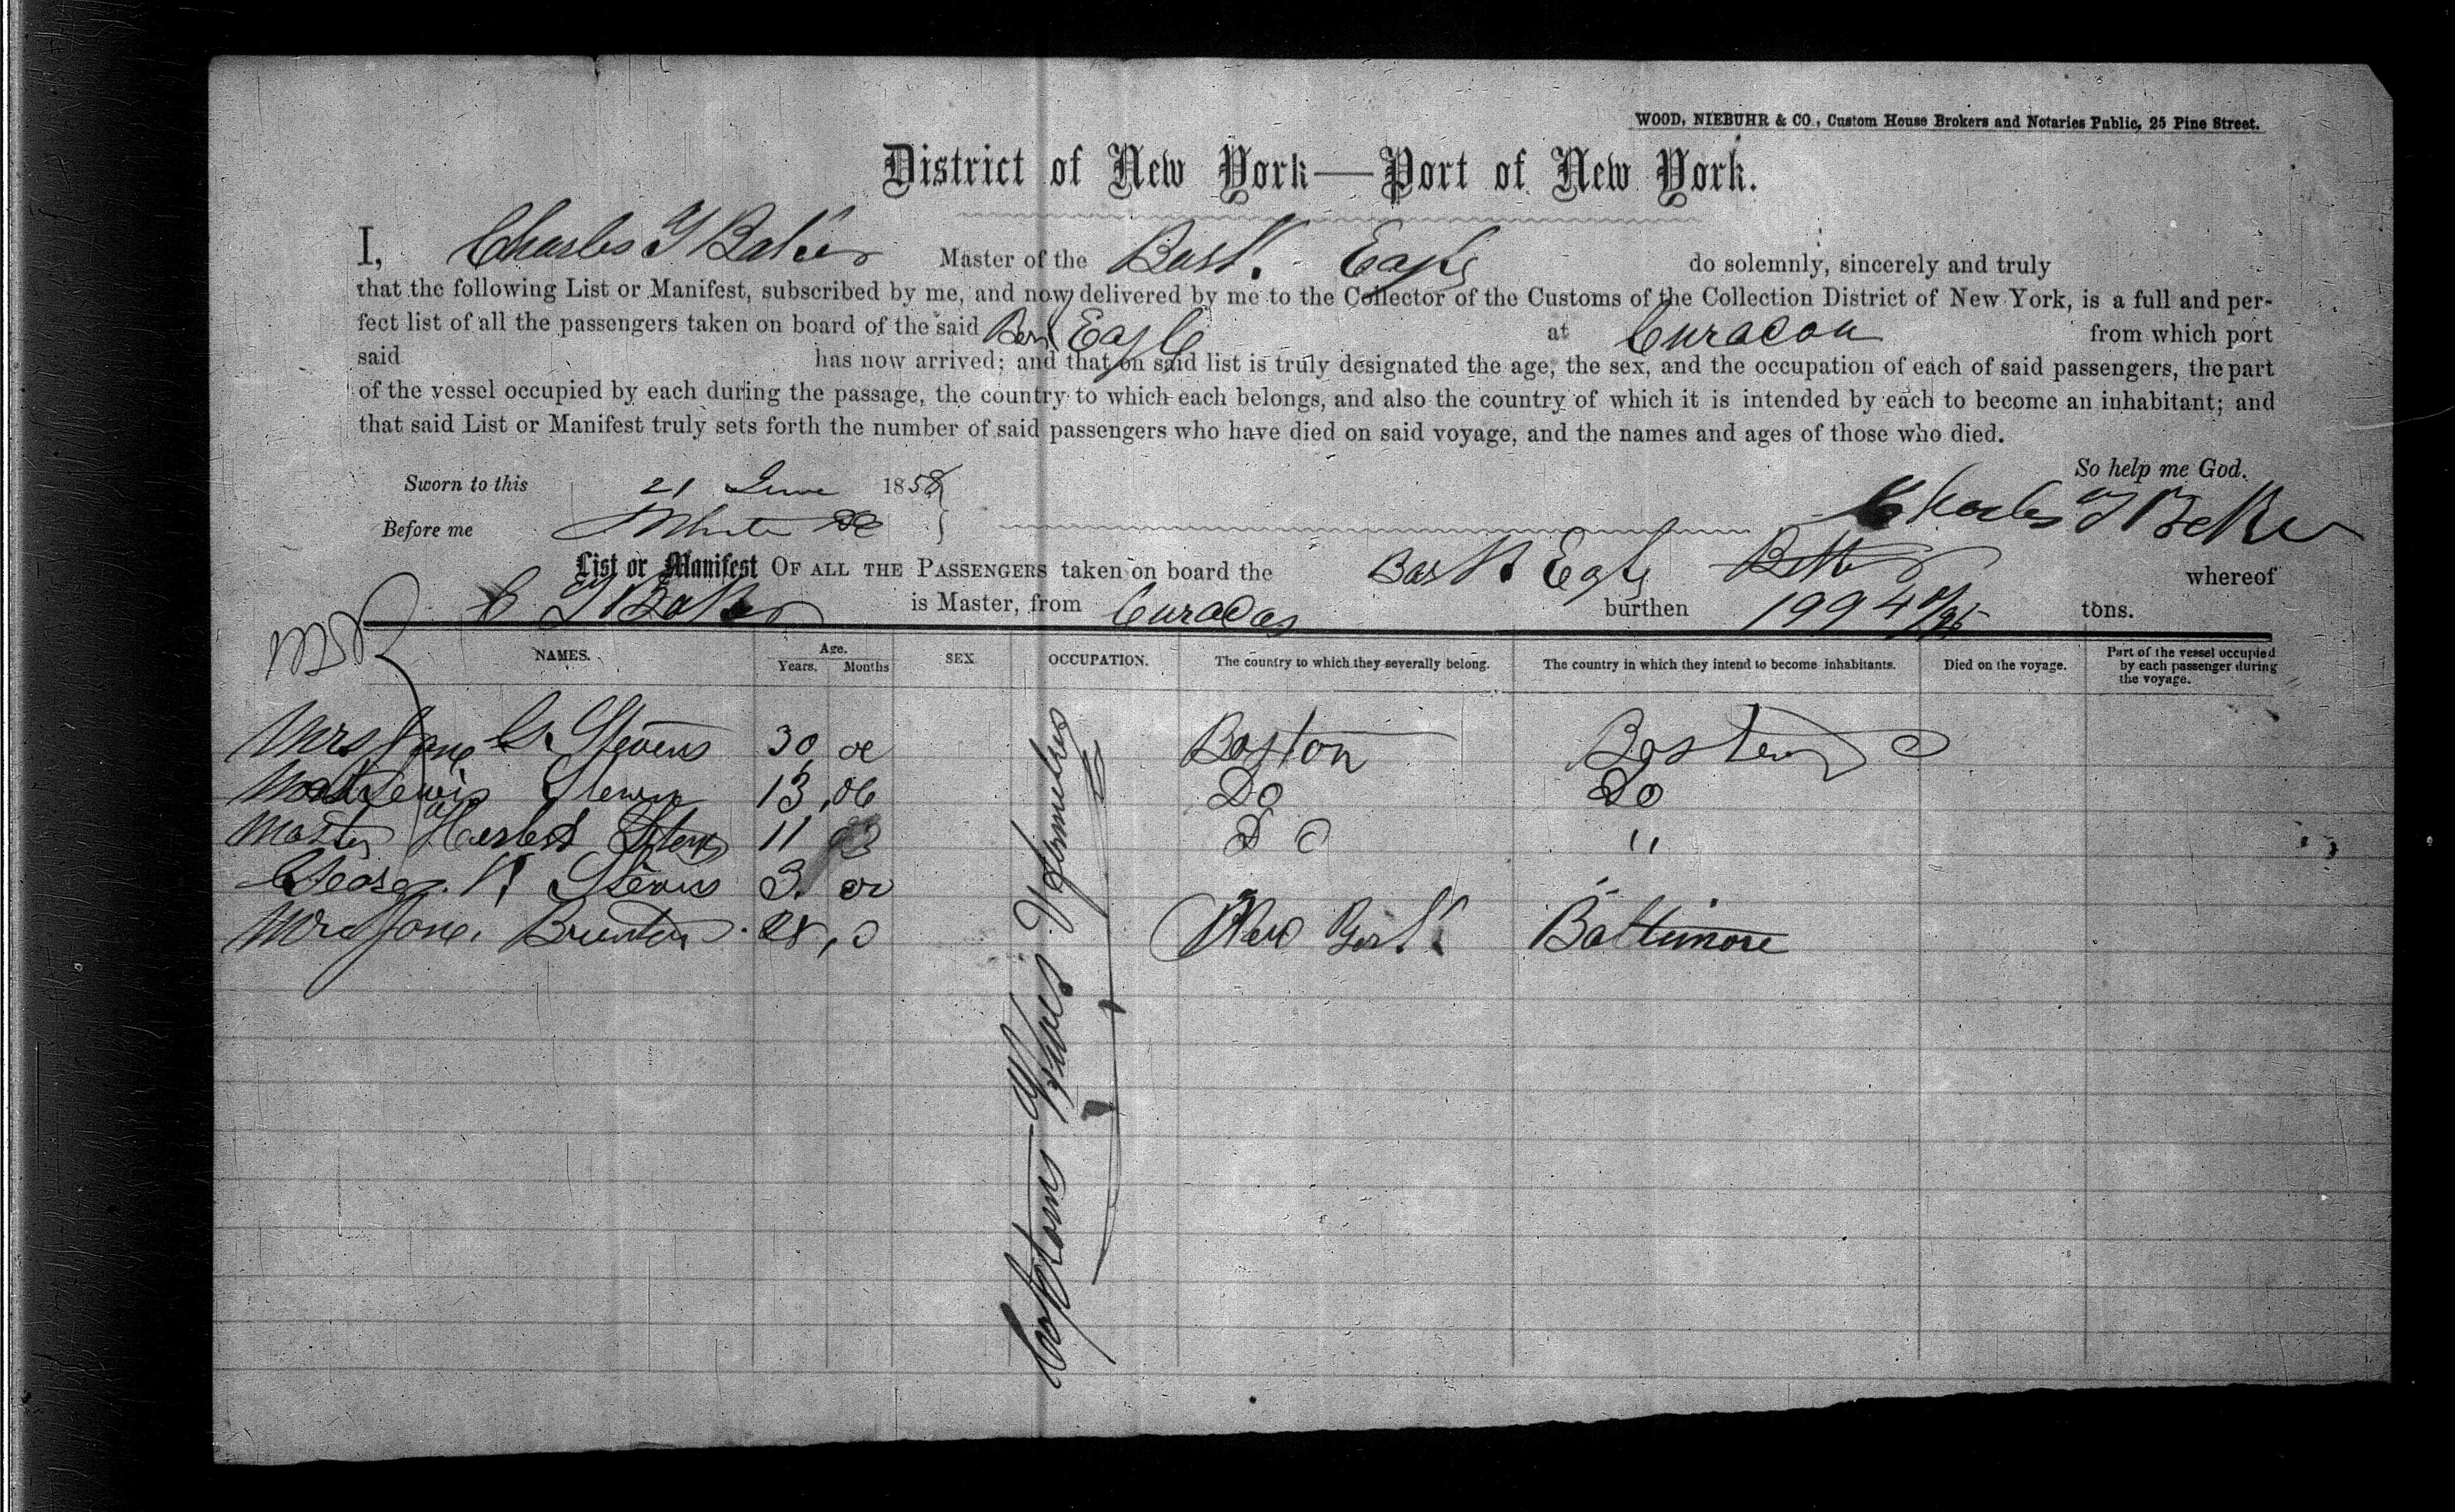 WOOD, NIEBUHR & CO., Custom House Brokers and Notaries Public, 25 Pine Street.
District of New York—Port of New York.
I, Charles J Baker Master of the Bark Eagle do solemnly, sincerely and truly
that the following List or Manifest, subscribed by me, and now delivered by me to the Collector of the Customs of the Collection District of New York, is a full and per-
fect list of all the passengers taken on board of the said Bark Eagle at Curacoa from which port
said has now arrived; and that on said list is truly designated the age, the sex, and the occupation of each of said passengers, the part
of the vessel occupied by each during the passage, the country to which each belongs, and also the country of which it is intended by each to become an inhabitant; and
that said List or Manifest truly sets forth the number of said passengers who have died on said voyage, and the names and ages of those who died.
So help me God.
Sworn to this 21 June 1858
Before me Charles J Baker
List or Manifest OF ALL THE PASSENGERS taken on board the Bark Eagle whereof
C J Baker is Master, from Curacao burthen 199 tons.
NAMES. Age. Years. Months SEX OCCUPATION. The country to which they severally belong. The country in which they intend to become inhabitants. Died on the voyage. Part of the vessel occupied by each passenger during the voyage.
Mrs Jane G. Stevens 30 Boston Boston
Mast Lewis Stevens 13, 06 Do Do
Master Herbert Stevens 11 Do "
George Stevens 3. "
Mrs Jane Brunton 28, 0 New York Baltimore
Captains Wives & families